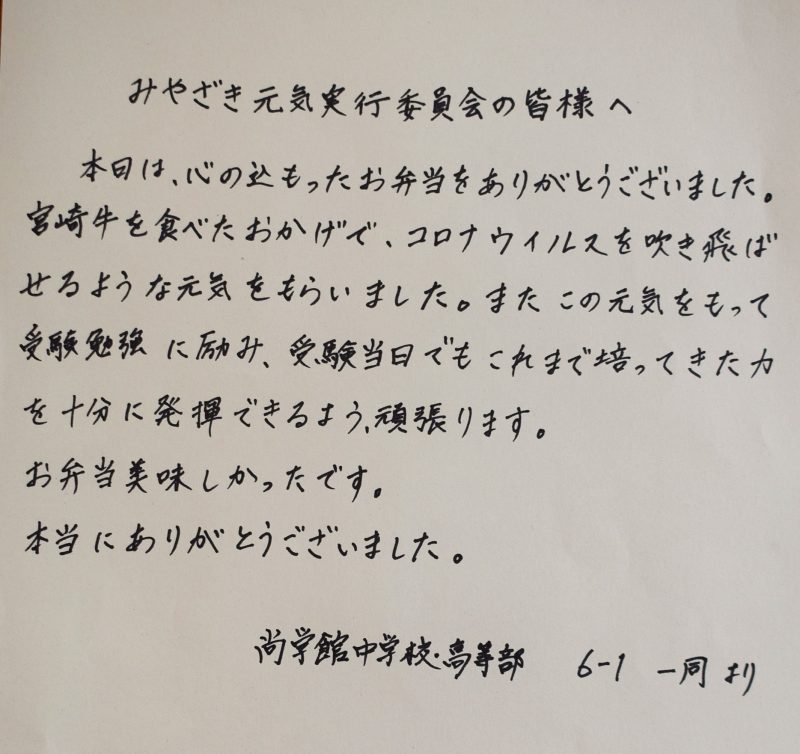 みやざき元気実行委員会の皆様へ
本日は、心の込もったお弁当をありがとうございました。
宮崎牛を食べたおかげで、コロナウイルスを吹き飛ば
せるような元気をもらいました。またこの元気をもって
受験勉強に励み、受験当日でもこれまで培ってきた力
を十分に発揮できるよう、頑張ります。
お弁当美味しかったです。
本当にありがとうございました。
尚学館中学校・高等部 6-1 一同より